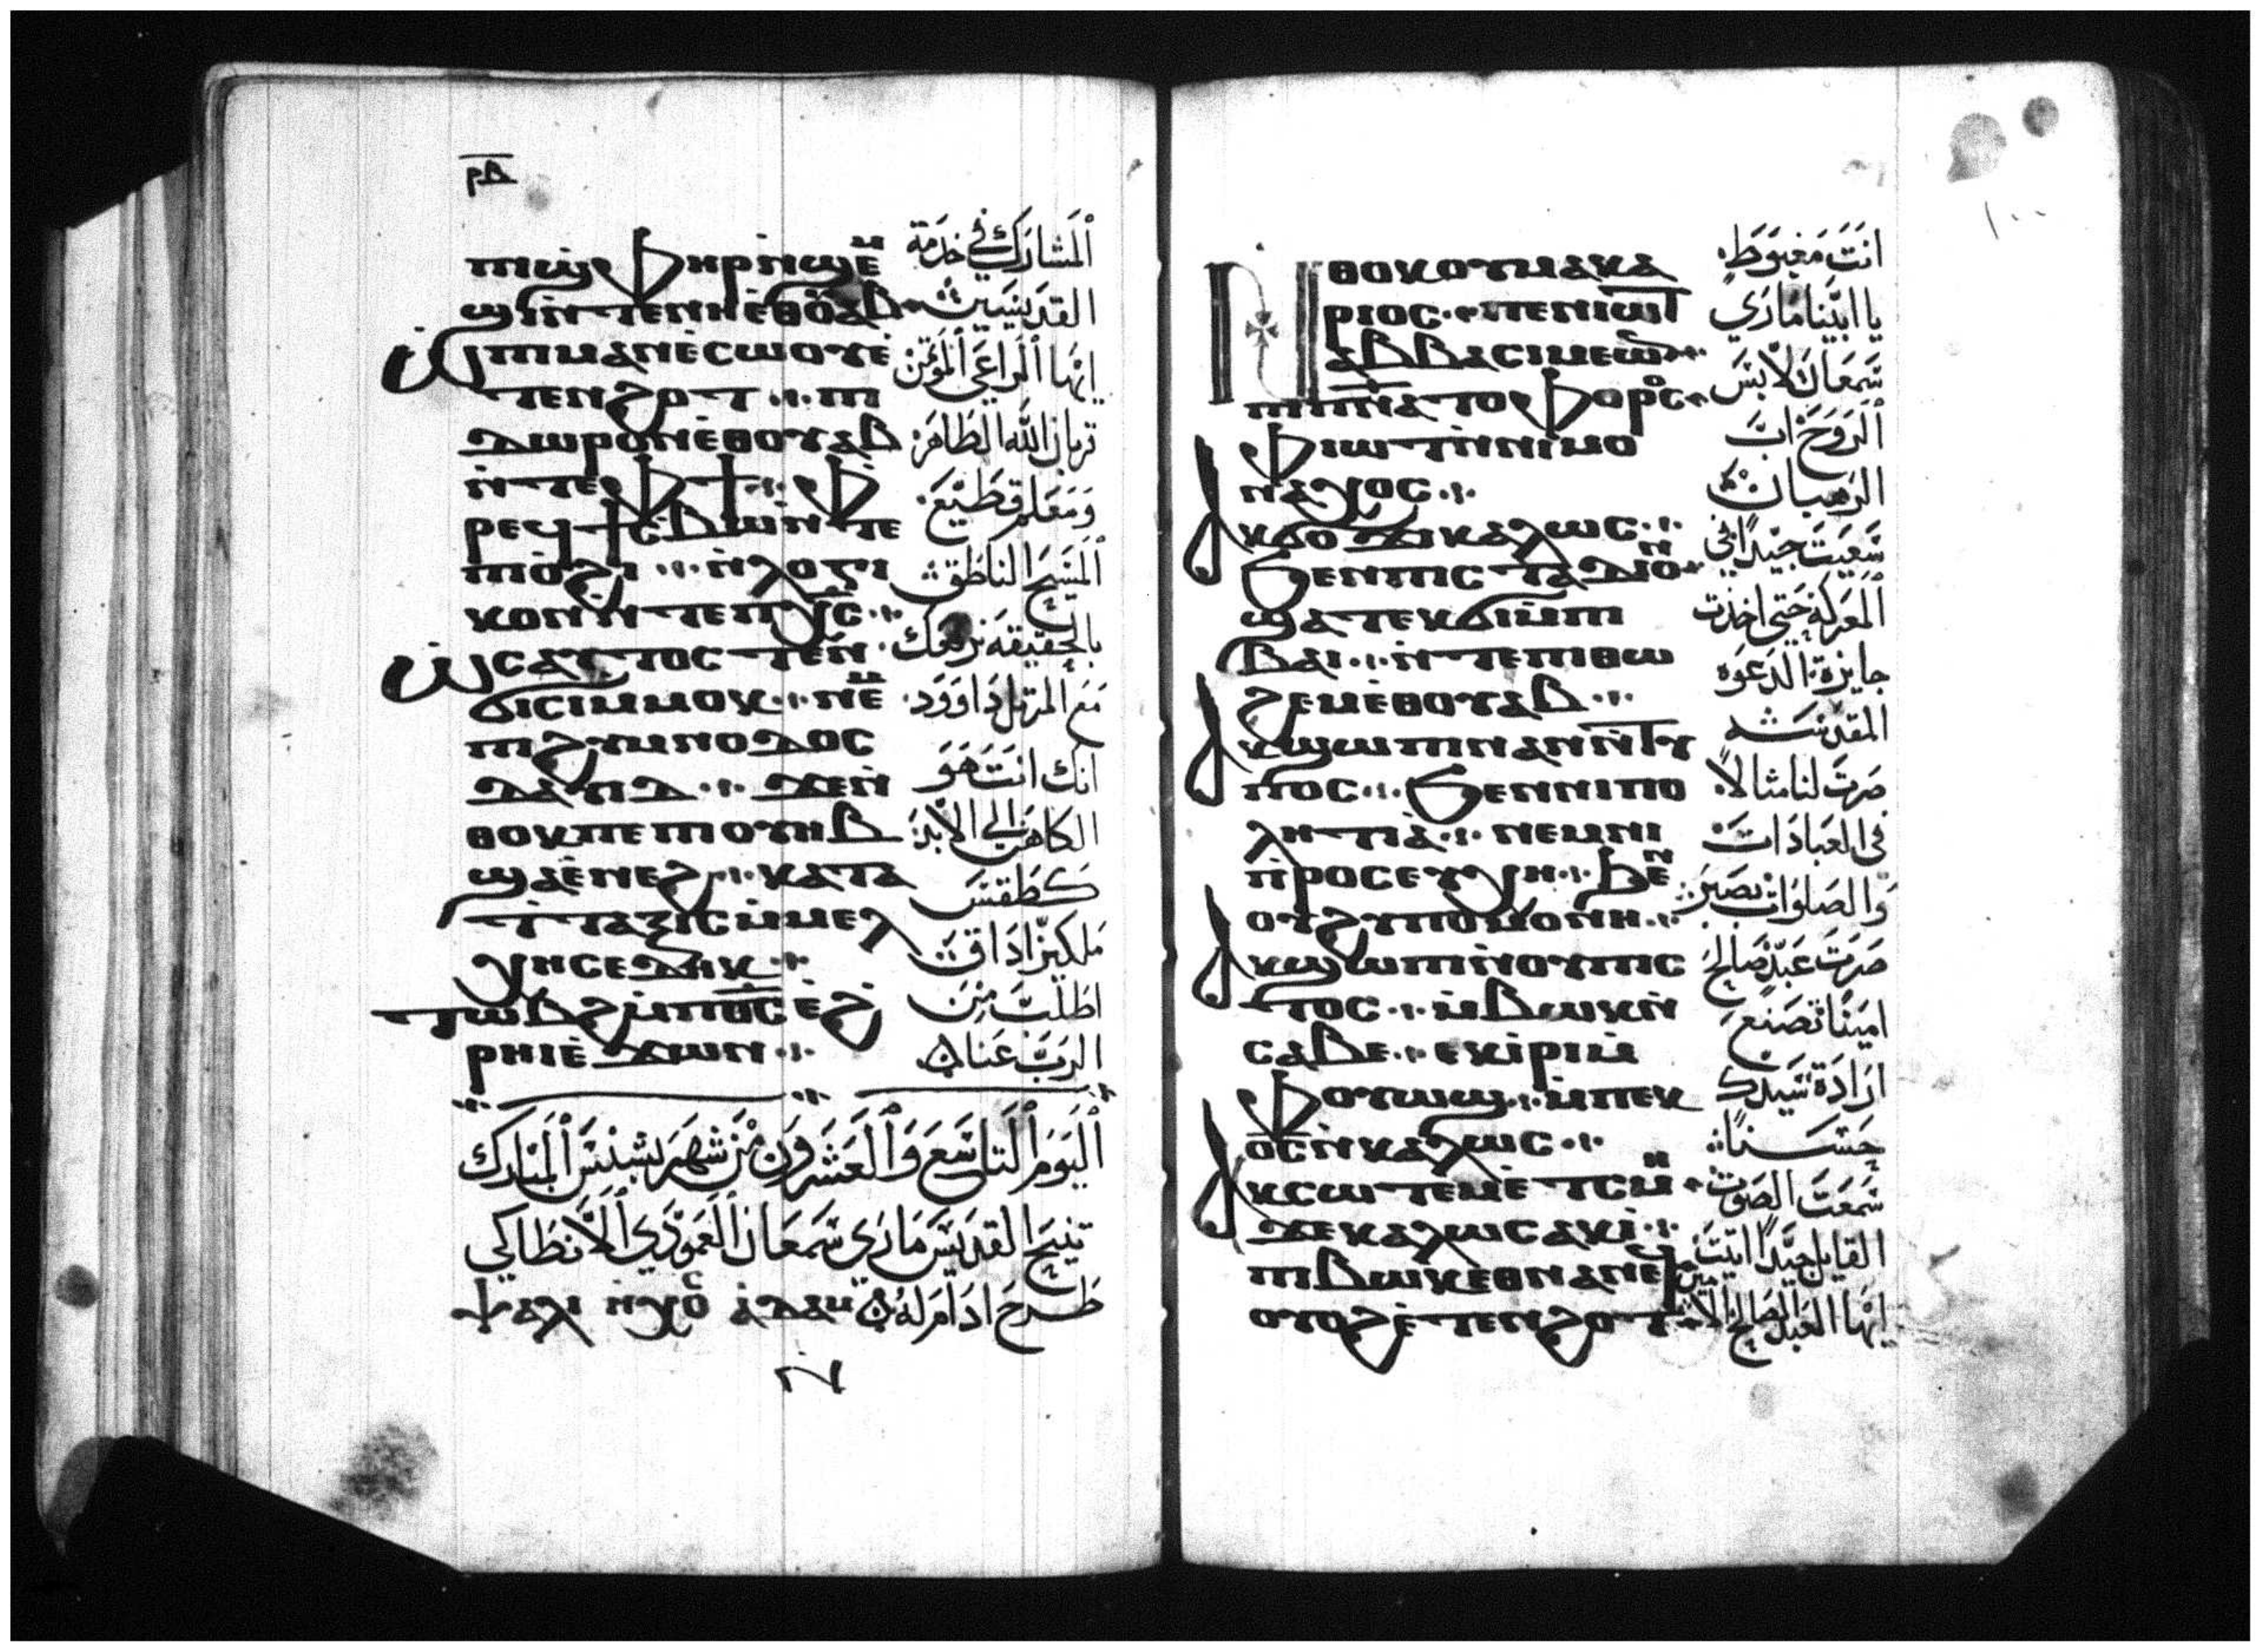 ⲣⲃ
ⲡⲓϣⲫⲏⲣ ⲛ̀ϣⲉⲙ
ϣⲓ ⲛ̀ⲧⲉ ⲛⲏⲉⲑⲟⲩⲁⲃ
ⲱ ⲡⲓⲙⲁⲛⲉⲥⲱⲟⲩ ⲉ̀
ⲧⲉⲛϩⲟⲧ ⲡⲓ
ⲇⲱⲣⲟⲛ ⲉ̀ⲑⲟⲩⲁⲃ
ⲛ̀ⲧⲉ ⲫϯ ⲫ
ⲣⲉϥϯⲥⲃⲱ ⲛ̀ⲧⲉ
ⲡⲓⲟ̀ϩⲓ ⲛ̀ⲗⲟⲅⲓ
ⲕⲟⲛ ⲛ̀ⲧⲉ ⲡⲭⲥ
ⲱⲥ ⲁⲩⲧⲟⲥ ⲧⲉⲛ
ϭⲓⲥⲓ ⲙ̀ⲙⲟⲕ ⲛⲉⲙ
ⲡⲓϩⲩⲙⲛⲟⲇⲟⲥ
ⲇⲁⲩⲇ ϫⲉ ⲛ̀
ⲑⲟⲕ ⲡⲉ ⲡⲓⲟⲩⲏⲃ
ϣⲁ ⲉ̀ⲛⲉϩ ⲕⲁⲧⲁ
ϯⲧⲁⲝⲓⲥ ⲙ̀ⲙⲉⲗ
ⲭⲏⲥⲉⲇⲉⲕ
ⲧⲱⲃϩ ⲙ̀ⲡⲟⲥ ⲉ̀ϩ
ⲣⲏⲓ ⲉ̀ϫⲱⲛ
المشارك في خدمة
القديسين
ايها الراعي المؤتمن
قربان الله الطاهر
ومعلم قطيع
المسيح الناطق
بالحقيقة نرفعك
مع المرتل داوود
انك انت هو
الكاهن الي الابد
كطقس
ملكيزاداق
اطلب من
الرب عنا
اليوم التاسع والعشرون من شهر بشنس المبارك
تنيح القديس ماري سمعان العمودي الانطاكي
طرح ادام له ⲯⲁⲗⲓ ⲛ̀ⲏⲭⲟⲥ ⲁ̀ⲇⲁⲙ
ⲛ̀
١٠٠
ⲛ̀ⲑⲟⲕ ⲟⲩⲙⲁⲕⲁ
ⲣⲓⲟⲥ ⲡⲉⲛⲓⲱⲧ
ⲁⲃⲃⲁ ⲥⲓⲙⲉⲱⲛ
ⲡⲓⲡⲛⲁⲧⲟⲫⲟⲣⲟⲥ
ⲫⲓⲱⲧ ⲛ̀ⲛⲓⲙⲟ
ⲛⲁⲭⲟⲥ
ⲁⲕϭⲟϫⲓ ⲕⲁⲗⲱⲥ
ϧⲉⲛ ⲡⲓⲥⲧⲁⲇⲓⲟⲛ
ϣⲁⲧⲉⲕϭⲓ ⲙ̀ⲡⲓ
ⲃⲁⲓ ⲛ̀ⲧⲉ ⲡⲓⲑⲱ
ϩⲉⲙ ⲉ̀ⲑⲟⲩⲁⲃ
ⲁⲕϣⲱⲡⲓ ⲛⲁⲛ ⲛ̀ⲧⲩ
ⲡⲟⲥ ϧⲉⲛ ⲛⲓⲡⲟ
ⲗⲏⲧⲓⲁ̀ ⲛⲉⲙ ⲛⲓ
ⲡ̀ⲣⲟⲥⲉⲩⲭⲏ ϧⲉⲛ
ⲟⲩϩⲩⲡⲟⲙⲟⲛⲏ
ⲁⲕϣⲱⲡⲓ ⲛ̀ⲟⲩⲡⲓⲥ
ⲧⲟⲥ ⲙ̀ⲃⲱⲕ ⲛ̀
ⲥⲁⲃⲉ ⲉⲕⲓ̀ⲣⲓ ⲙ̀
ⲫⲟⲩⲱϣ ⲙ̀ⲡⲉⲕ
ⲟⲥ ⲛ̀ⲕⲁⲗⲱⲥ
ⲁⲕⲥⲱⲧⲉⲙ ⲉ̀ⲧⲥⲙⲏ
ϫⲉ ⲕⲁⲗⲱⲥ ⲁⲕⲓ̀
ⲡⲓⲃⲱⲕ ⲉⲑⲛⲁⲛⲉϥ
ⲟⲩⲟϩ ⲉ̀ⲧⲉⲛϩⲟⲧ
انت مغبوط
يا ابينا ماري
سمعان لابس
الروح اب
الرهبان
سعيت جيدا في
المعركة حتي اخذت
جايزة الدعوه
المقدسه
صرت لنا مثالا
في العبادات
والصلوات بصبر
صرت عبد صالح
امينا تصنع
ارادة سيدك
حسنا
سمعت الصوت
القايل جيدا اتيت
ايها العبد الصالح الامين